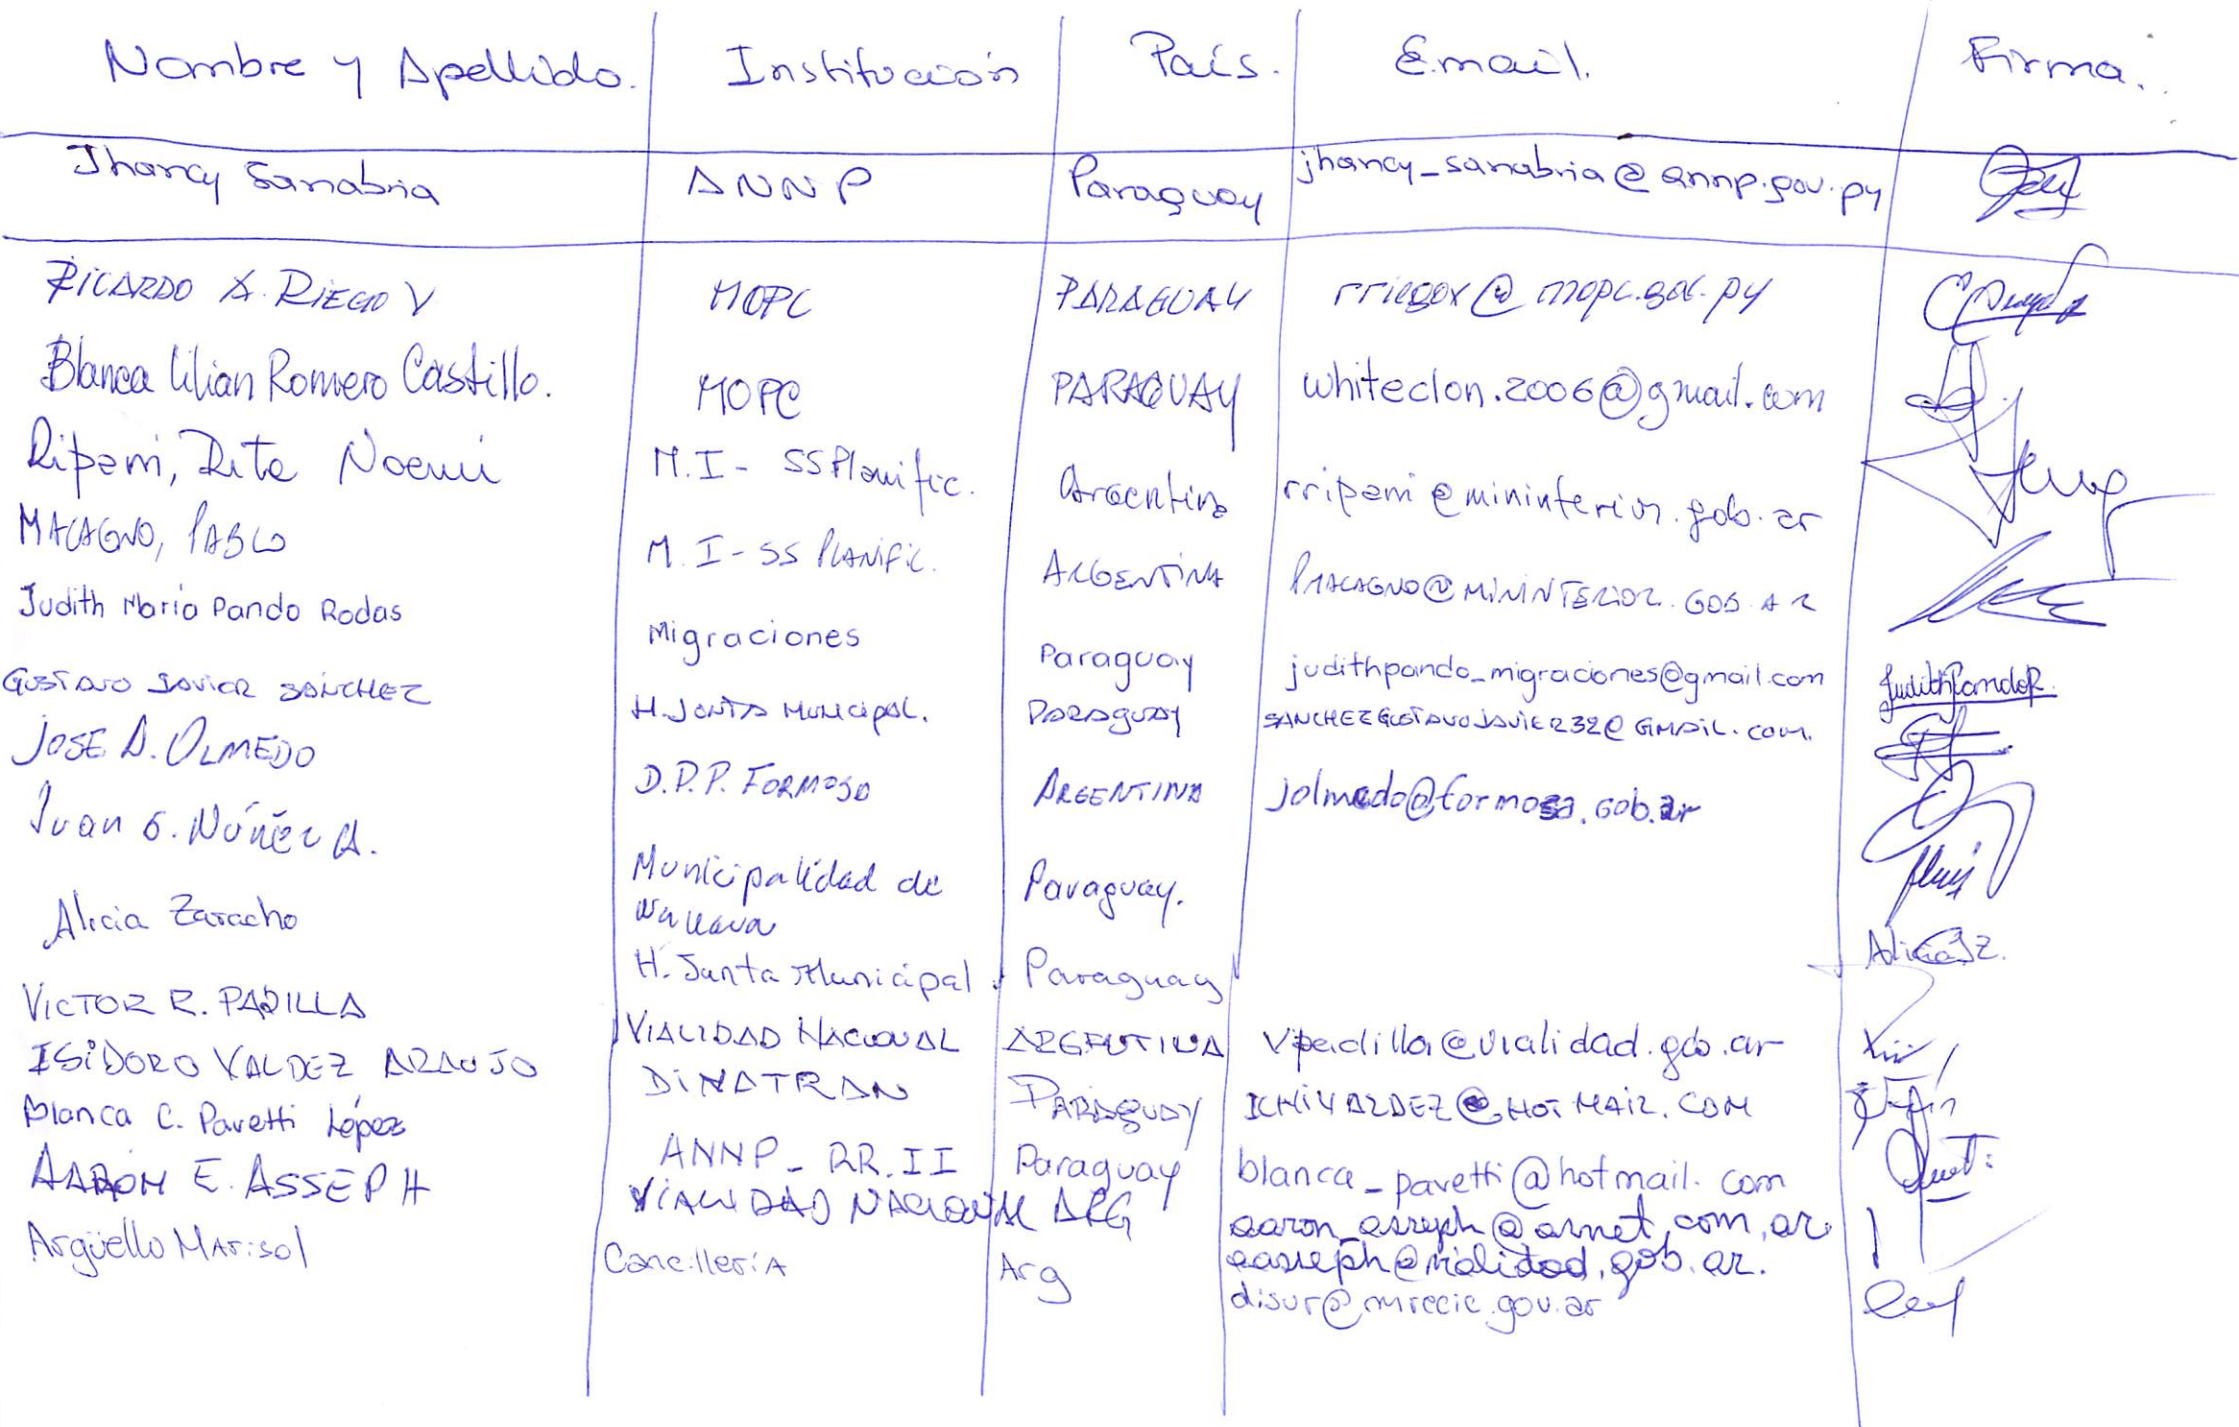 Nombre y Apellido. Institución País. Email. Firma.
Jhancy Sanabria ANNP Paraguay jhancy_sanabria@annp.gov.py
RICARDO A. RIEGO V MOPC PARAGUAY
Blanca Lilian Romero Castillo. MOPC PARAGUAY whiteclon.2006@gmail.com
Ripani, Rita Noemi M.I - SSPlanific. Argentina rripani@mininterior.gob.ar
MACAGNO, PABLO M.I - SS PLANIFIC. ARGENTINA PMACAGNO@MININTERIOR.GOB.AR
Judith María Pando Rodas Migraciones Paraguay judithpando_migraciones@gmail.com JudithPandoR
GUSTAVO JAVIER SÁNCHEZ H. JUNTA MUNICIPAL. PARAGUAY SANCHEZGUSTAVOJAVIER32@GMAIL.COM.
JOSE A. OLMEDO D.P.P. FORMOSA ARGENTINA jolmedo@formosa.gob.ar
Juan G. Núñez A. Municipalidad de Paraguay.
Alicia Zaracho H. Junta Municipal. Paraguay Alicia Z.
VICTOR R. PADILLA VIALIDAD NACIONAL ARGENTINA vpadilla@vialidad.gob.ar
ISIDORO VALDEZ ARAUJO DINATRAN PARAGUAY ICHIVALDEZ@HOTMAIL.COM
Blanca C. Pavetti López ANNP_RR.II Paraguay blanca_pavetti@hotmail.com
AARON E. ASSEPH VIALIDAD NACIONAL ARG aaron_asseph@arnet.com.ar
aasseph@vialidad.gob.ar.
Argüello Marisol Cancillería Arg disur@mrecic.gov.ar